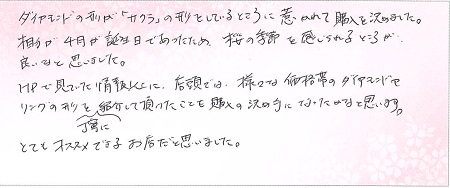 ダイヤモンドの形が「サクラ」の形をしているところに惹かれて購入を決めました。
相手が4月が誕生日であったため、桜の季節を感じられるところが、
良いなと思いました。
HPで見ていた情報以上に、店頭では、様々な価格帯のダイヤモンドや
リングの形を紹介して頂けたことも購入の決め手になったかなと思います。
丁寧に
とてもオススメできるお店だと思いました。